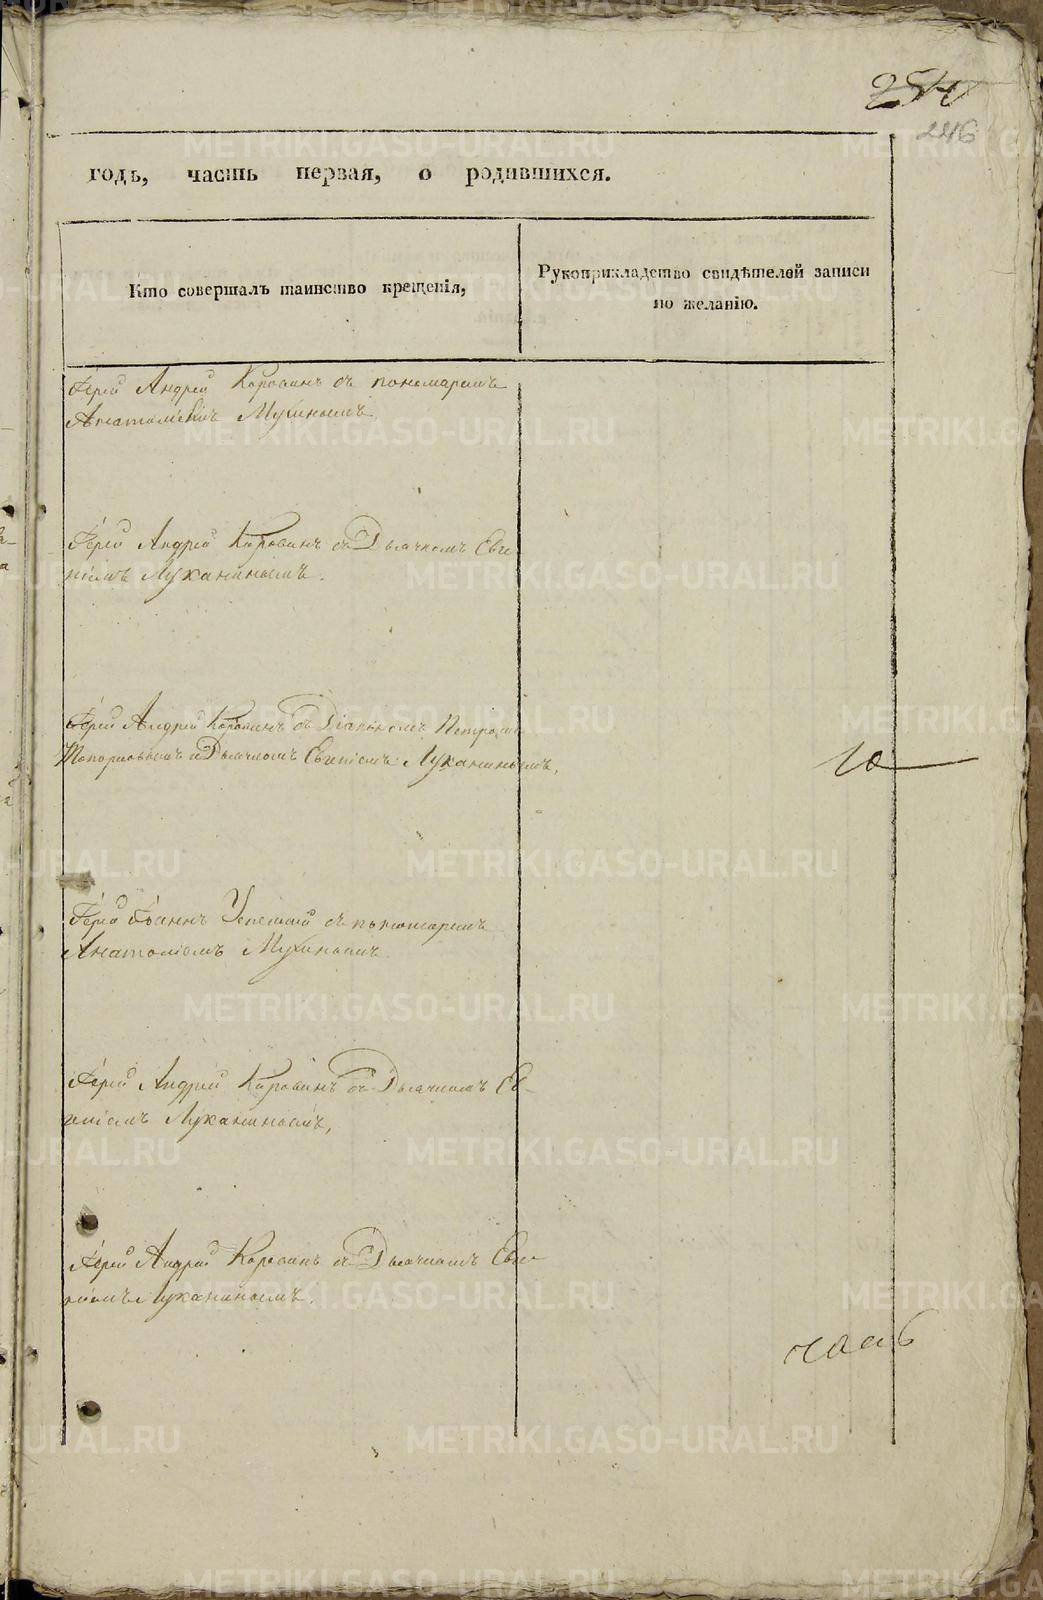 254
246
годъ, часть первая, о родившихся.
Кто совершалъ таинство крещенія,
Рукоприкладство свидѣтелей записи
по желанію.
Іерей Андрей Коровинъ съ пономаремъ
Анатоліемъ Мухинымъ.
Іерей Андрей Коровинъ съ Дьячкомъ Евге
ніемъ Луканинымъ.
Іерей Андрей Коровинъ съ Діакономъ Петромъ
Топорковымъ и Дьячкомъ Евгеніемъ Луканинымъ,
Іерей Іоаннъ съ пономаремъ
Анатоліемъ Мухинымъ.
Іерей Андрей Коровинъ съ Дьячкомъ Ев-
геніемъ Луканинымъ,
Іерей Андрей Коровинъ съ Дьячкомъ Евге-
ніемъ Луканинымъ.
METRIKI.GASO-URAL.RU